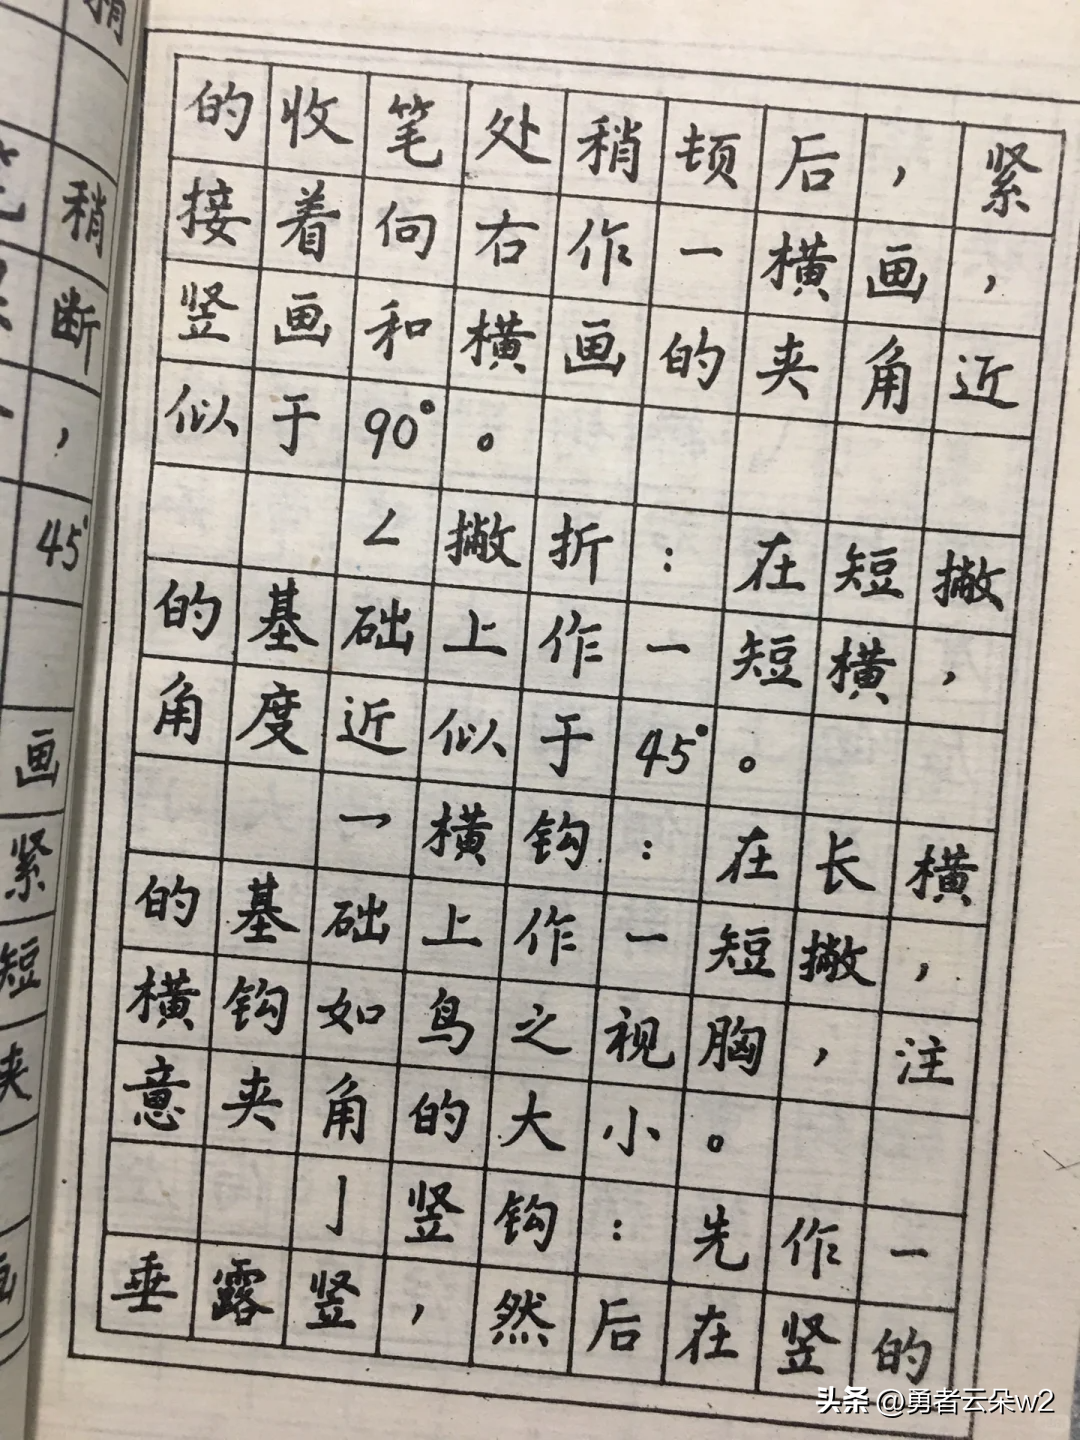 的收笔处稍顿后，紧
接着向右作一横画，
竖画和横画的夹角近
似于90°。
ㄥ撇折：在短撇
的基础上作一短横，
角度近似于45°。
乛横钩：在长横
的基础上作一短撇，
横钩如鸟之视胸，注
意夹角的大小。
亅竖钩：先作一
垂露竖，然后在竖的
稍
断
，
45°
画
紧
短
夹
头条 @勇者云朵w2